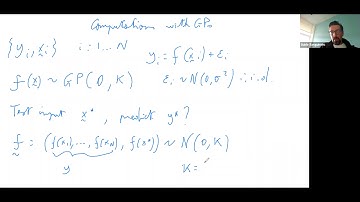 Computations with GPs
{y_i, x_i} i = 1 ... N
y_i = f(x_i) + ε_i
f(x) ~ GP(0, K)
ε_i ~ N(0, σ²) i.i.d.
Test input x*, predict y*?
f = (f(x_1), ..., f(x_N), f(x*)) ~ N(0, K)
y
K =